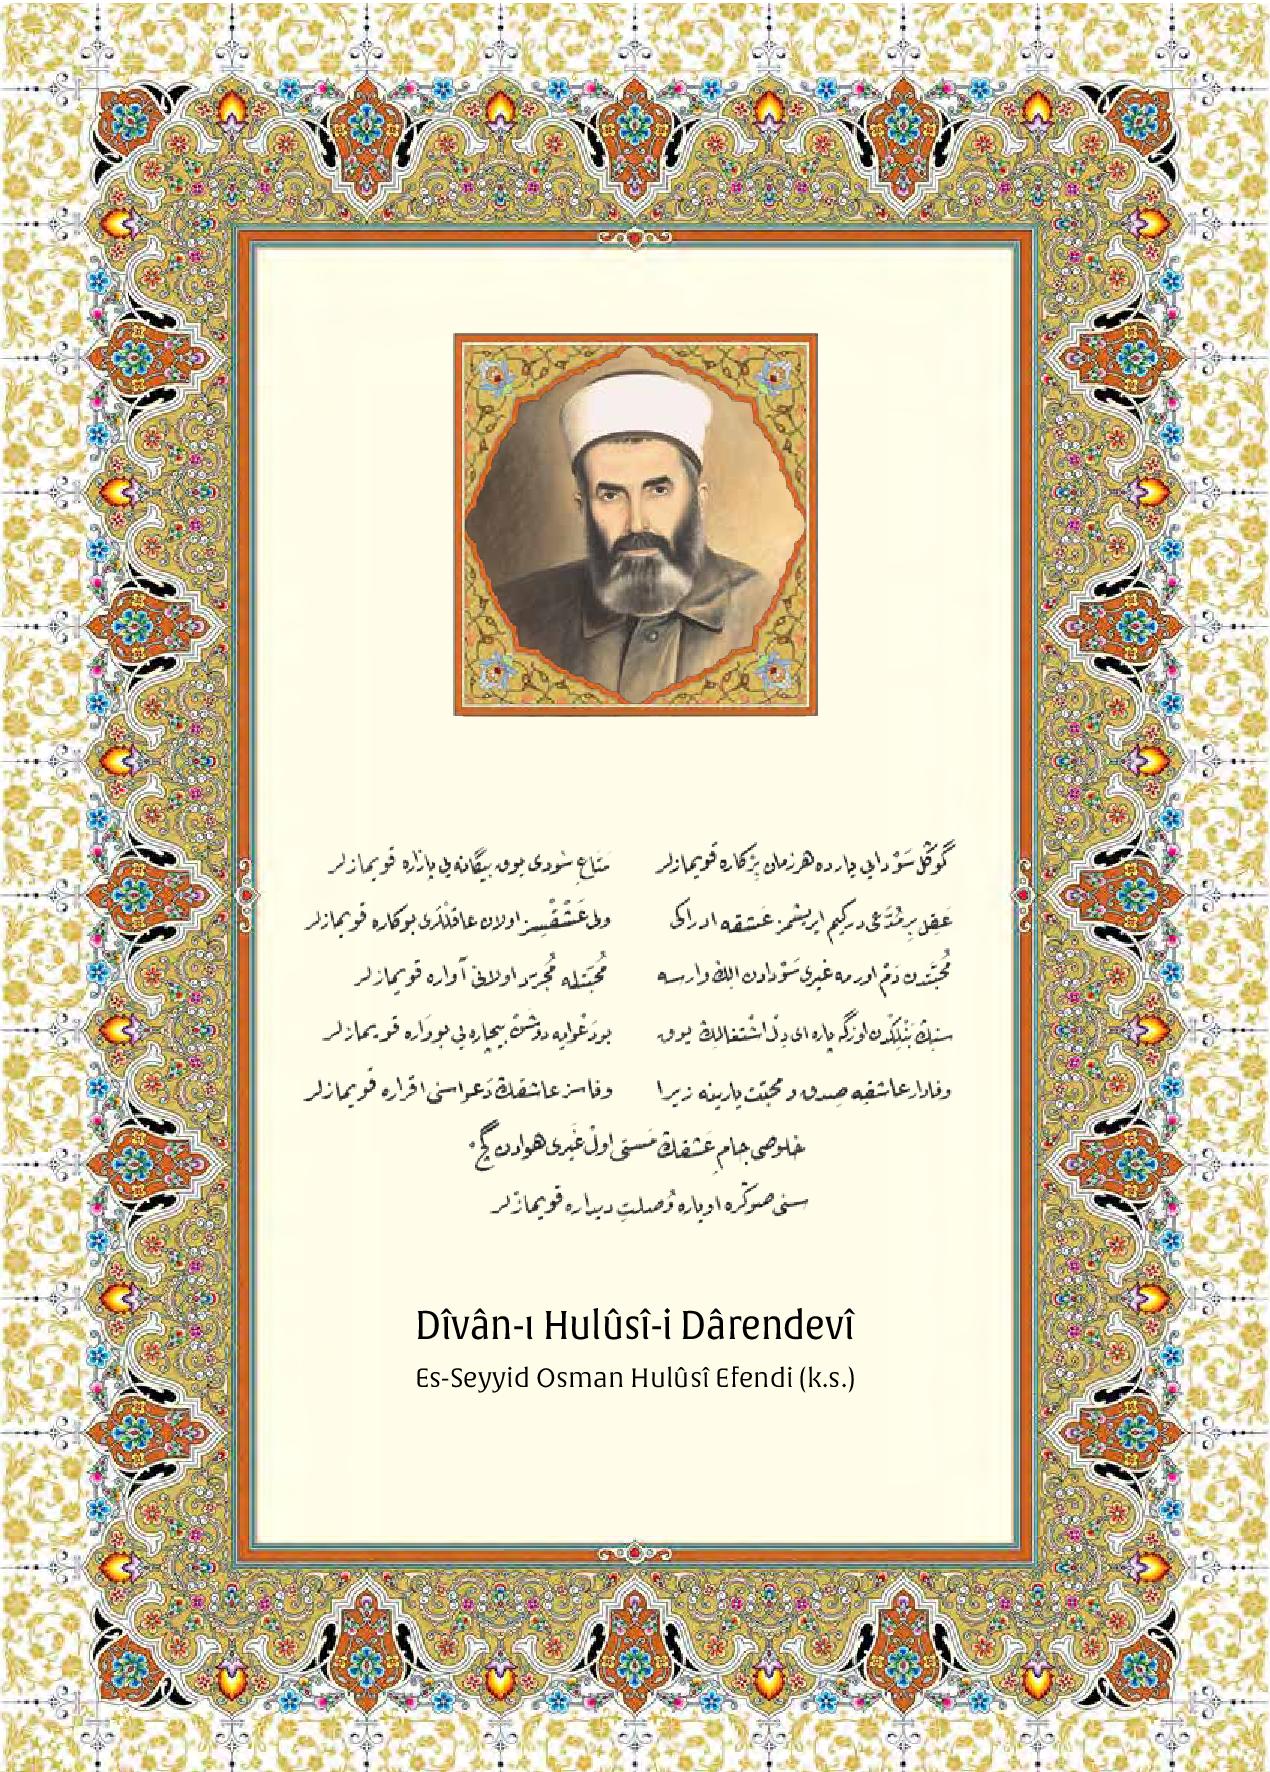 كوڭل سَوْدايى يارده هر زمان بر كاره قويمازلر متاعِ سودى يوق بيگانه‌يى بازاره قويمازلر
عقل بر مُدَّعى دركيم ايريشمز عشقه ادراكى ولى عَشْقْسِز اولان عاقللرى بو كاره قويمازلر
مُحَبَّتدن دَمْ اورمه غيرى سَوْدادن الڭ وارسه مُحَبَّتله مُجرّد اولانى آواره قويمازلر
سنڭ بَنْلِكْدن اوزگه ياره اى دِلْ اشتغالڭ يوق بو دَعْوايه دوشن بيچاره‌يى بو داره قويمازلر
وفادار عاشقه صِدق و محبّت يارينه زيرا وفاسز عاشقڭ دَعواسنى اقراره قويمازلر
خلوصى جامِ عَشقڭ مَستى اولْ غيرى هوادن گچ
سنى صوڭره او ياره وُصلتِ ديداره قويمازلر
Dîvân-ı Hulûsî-i Dârendevî
Es-Seyyid Osman Hulûsî Efendi (k.s.)